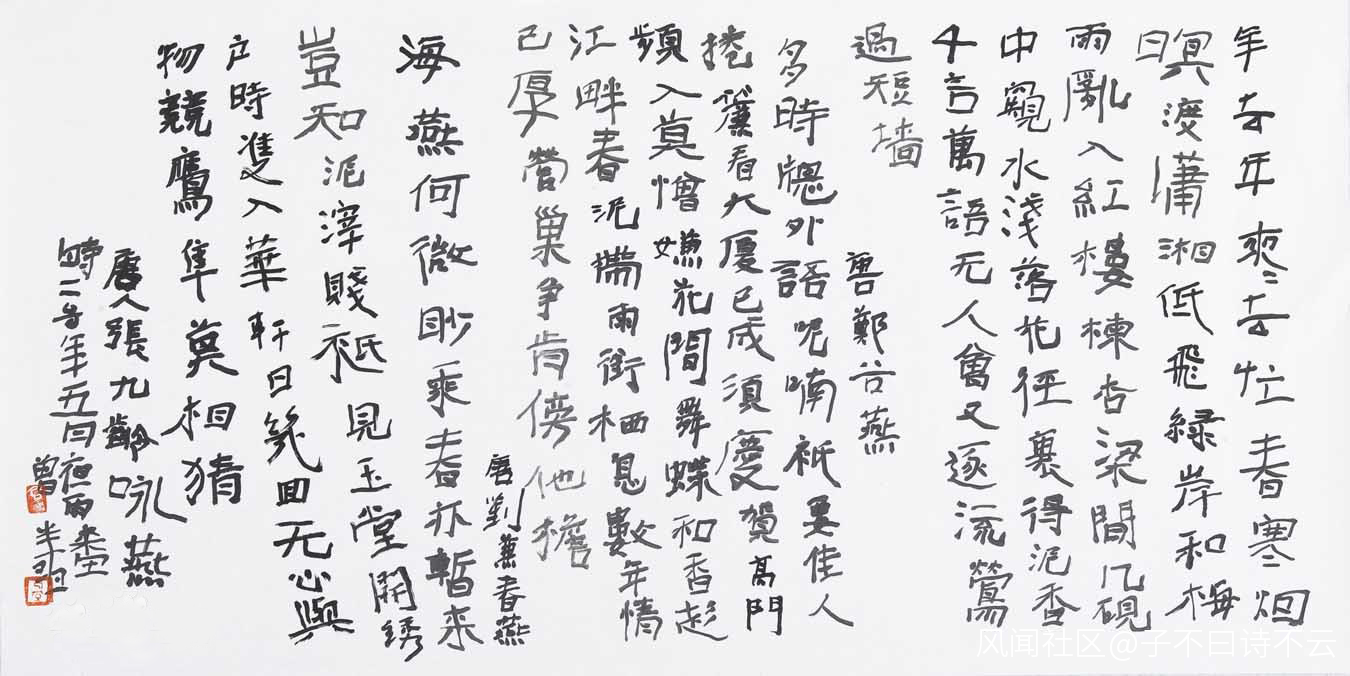 年去年來〻去忙春寒烟
暝渡瀟湘低飛緑岸和梅
雨亂入紅樓棟杏梁間几硯
中窺水淺落花徑裏得泥香
千言萬語无人會又逐流鶯
過短墻
唐鄭谷燕
多時牕外語呢喃祇要佳人
捲簾看大廈已成須慶賀高門
頻入莫憎嫌花間舞蝶和香趁
江畔春泥帶雨銜栖息數年情
已厚營巢爭肯傍他檐
唐劉兼春燕
海燕何微眇乘春亦暫來
豈知泥滓賤祇見玉堂開綉
户時雙入華軒日幾回无心與
物競鷹隼莫相猜
唐人張九齡咏燕
時二年五月夜雨
曾半
风闻社区@子不曰诗不云